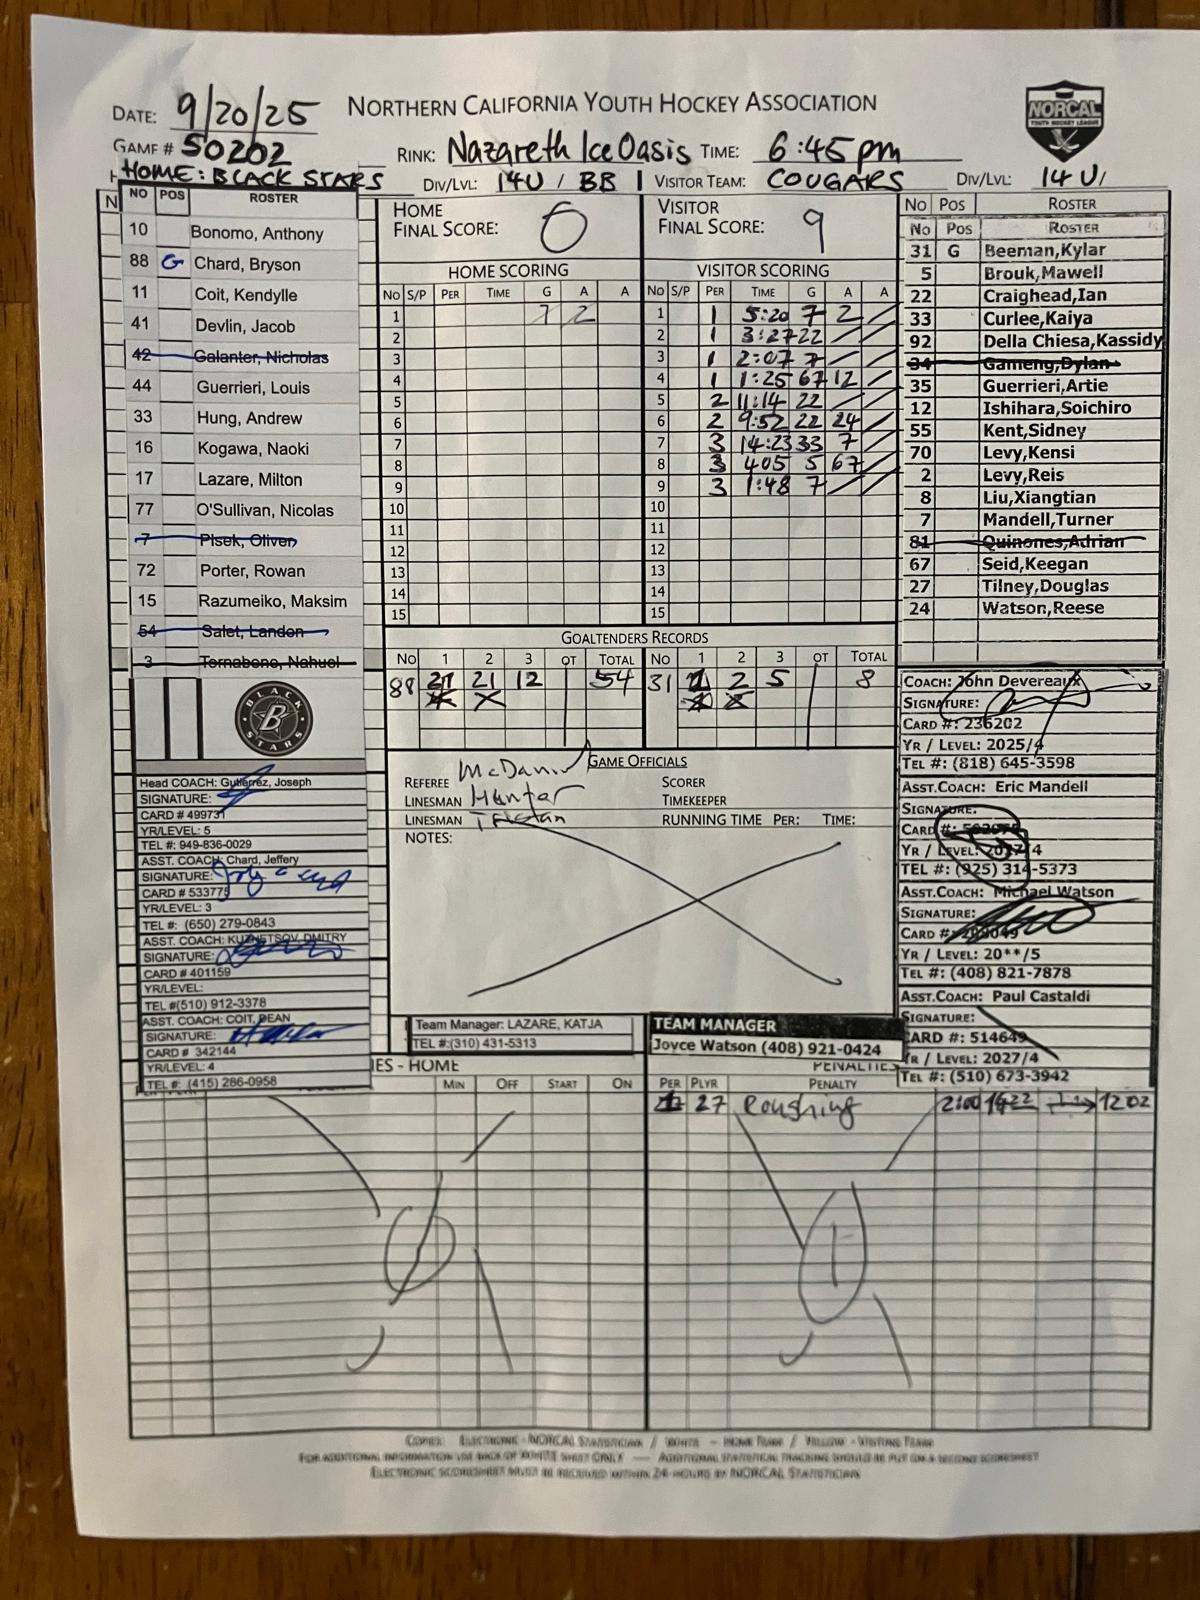 NORTHERN CALIFORNIA YOUTH HOCKEY ASSOCIATION
NORCAL
YOUTH HOCKEY LEAGUE
DATE: 9/20/25
GAME # 50202
RINK: Nazareth Ice Oasis TIME: 6:45 pm
HOME: BLACK STARS
DIV/LVL: 14U / BB
VISITOR TEAM: COUGARS
DIV/LVL: 14U/
NO POS ROSTER
10 Bonomo, Anthony
88 G Chard, Bryson
11 Coit, Kendylle
41 Devlin, Jacob
42 Galanter, Nicholas
44 Guerrieri, Louis
33 Hung, Andrew
16 Kogawa, Naoki
17 Lazare, Milton
77 O'Sullivan, Nicolas
7 Pisek, Oliver
72 Porter, Rowan
15 Razumeiko, Maksim
54 Salet, Landon
3 Tornabene, Nahuel
BLACK
B
STARS
Head COACH: Gutierrez, Joseph
SIGNATURE:
CARD # 499731
YR/LEVEL: 5
TEL #: 949-836-0029
ASST. COACH: Chard, Jeffery
SIGNATURE:
CARD # 533775
YR/LEVEL: 3
TEL #: (650) 279-0843
ASST. COACH: KUZNETSOV, DMITRY
SIGNATURE:
CARD # 401159
YR/LEVEL:
TEL #(510) 912-3378
ASST. COACH: COIT, DEAN
SIGNATURE:
CARD # 342144
YR/LEVEL: 4
TEL #: (415) 286-0958
HOME FINAL SCORE: 0
VISITOR FINAL SCORE: 9
HOME SCORING
No S/P PER TIME G A A
1 7 2
2
3
4
5
6
7
8
9
10
11
12
13
14
15
VISITOR SCORING
No S/P PER TIME G A A
1 1 5:20 7 2
2 1 3:27 22
3 1 2:07 7
4 1 1:25 67 12
5 2 11:14 22
6 2 9:52 22 24
7 3 14:23 33 7
8 3 405 5 67
9 3 1:48 7
10
11
12
13
14
15
GOALTENDERS RECORDS
No 1 2 3 OT TOTAL
88 21 21 12 54
No 1 2 3 OT TOTAL
31 1 2 5 8
GAME OFFICIALS
REFEREE
LINESMAN Hunter
LINESMAN Tristan
SCORER
TIMEKEEPER
RUNNING TIME PER: TIME:
NOTES:
Team Manager: LAZARE, KATJA
TEL #:(310) 431-5313
TEAM MANAGER
Joyce Watson (408) 921-0424
No Pos ROSTER
No Pos ROSTER
31 G Beeman,Kylar
5 Brouk,Mawell
22 Craighead,Ian
33 Curlee,Kaiya
92 Della Chiesa,Kassidy
34 Gameng,Dylan
35 Guerrieri,Artie
12 Ishihara,Soichiro
55 Kent,Sidney
70 Levy,Kensi
2 Levy,Reis
8 Liu,Xiangtian
7 Mandell,Turner
81 Quinones,Adrian
67 Seid,Keegan
27 Tilney,Douglas
24 Watson,Reese
COACH: John Devereaux
SIGNATURE:
CARD #: 236202
YR / LEVEL: 2025/4
TEL #: (818) 645-3598
ASST.COACH: Eric Mandell
SIGNATURE:
CARD #:
YR / LEVEL: 2017/4
TEL #: (925) 314-5373
ASST.COACH: Michael Watson
SIGNATURE:
CARD #:
YR / LEVEL: 20**/5
TEL #: (408) 821-7878
ASST.COACH: Paul Castaldi
SIGNATURE:
CARD #: 514649
YR / LEVEL: 2027/4
TEL #: (510) 673-3942
IES - HOME
MIN OFF START ON
PENALTIES
PER PLYR PENALTY
27 Roughing 2:00 1422 1202
0
1
COPIES: ELECTRONIC - NORCAL STATISTICIAN / WHITE - HOME TEAM / YELLOW - VISITING TEAM
FOR ADDITIONAL INFORMATION USE BACK OF WHITE SHEET ONLY — ADDITIONAL STATISTICAL TRACKING SHOULD BE PUT ON A SECOND SCORESHEET
ELECTRONIC SCORESHEET MUST BE RECEIVED WITHIN 24-HOURS BY NORCAL STATISTICIAN